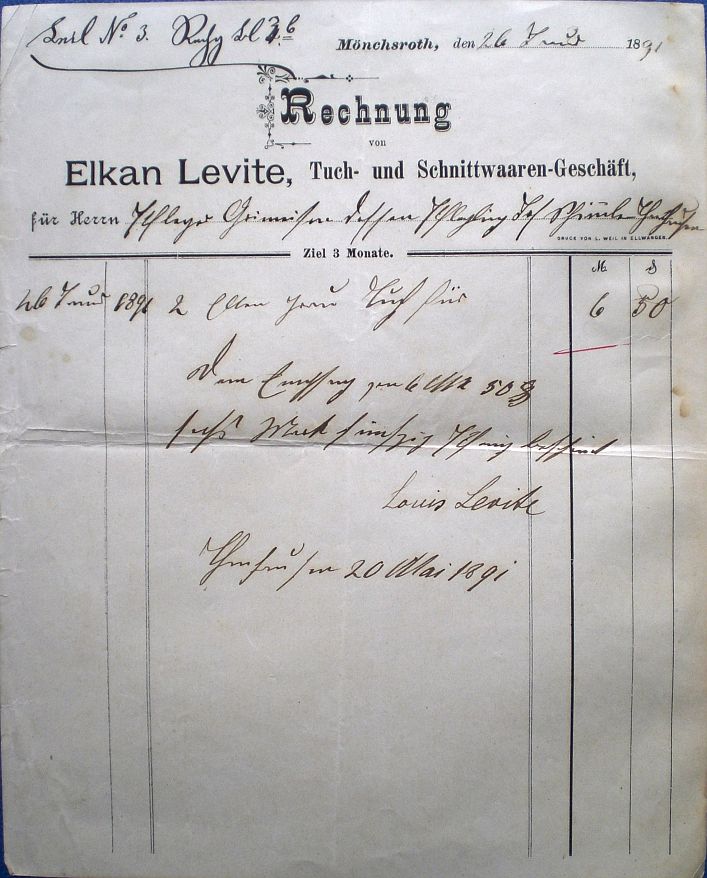 Beil No 3. Rechg bl 3.b
Mönchsroth, den 26 1891
Rechnung
von
Elkan Levite, Tuch- und Schnittwaaren-Geschäft,
für Herrn Pfleger dessen Pflegling
DRUCK VON L. WEIL IN ELLWANGEN.
Ziel 3 Monate.
M ₰
26 1891 2 Ellen Tuch für 6 50
Den Empfang von 6 Mk 50 ₰
sechs Mark fünfzig Pfennig bescheint
Louis Levite
20 Mai 1891